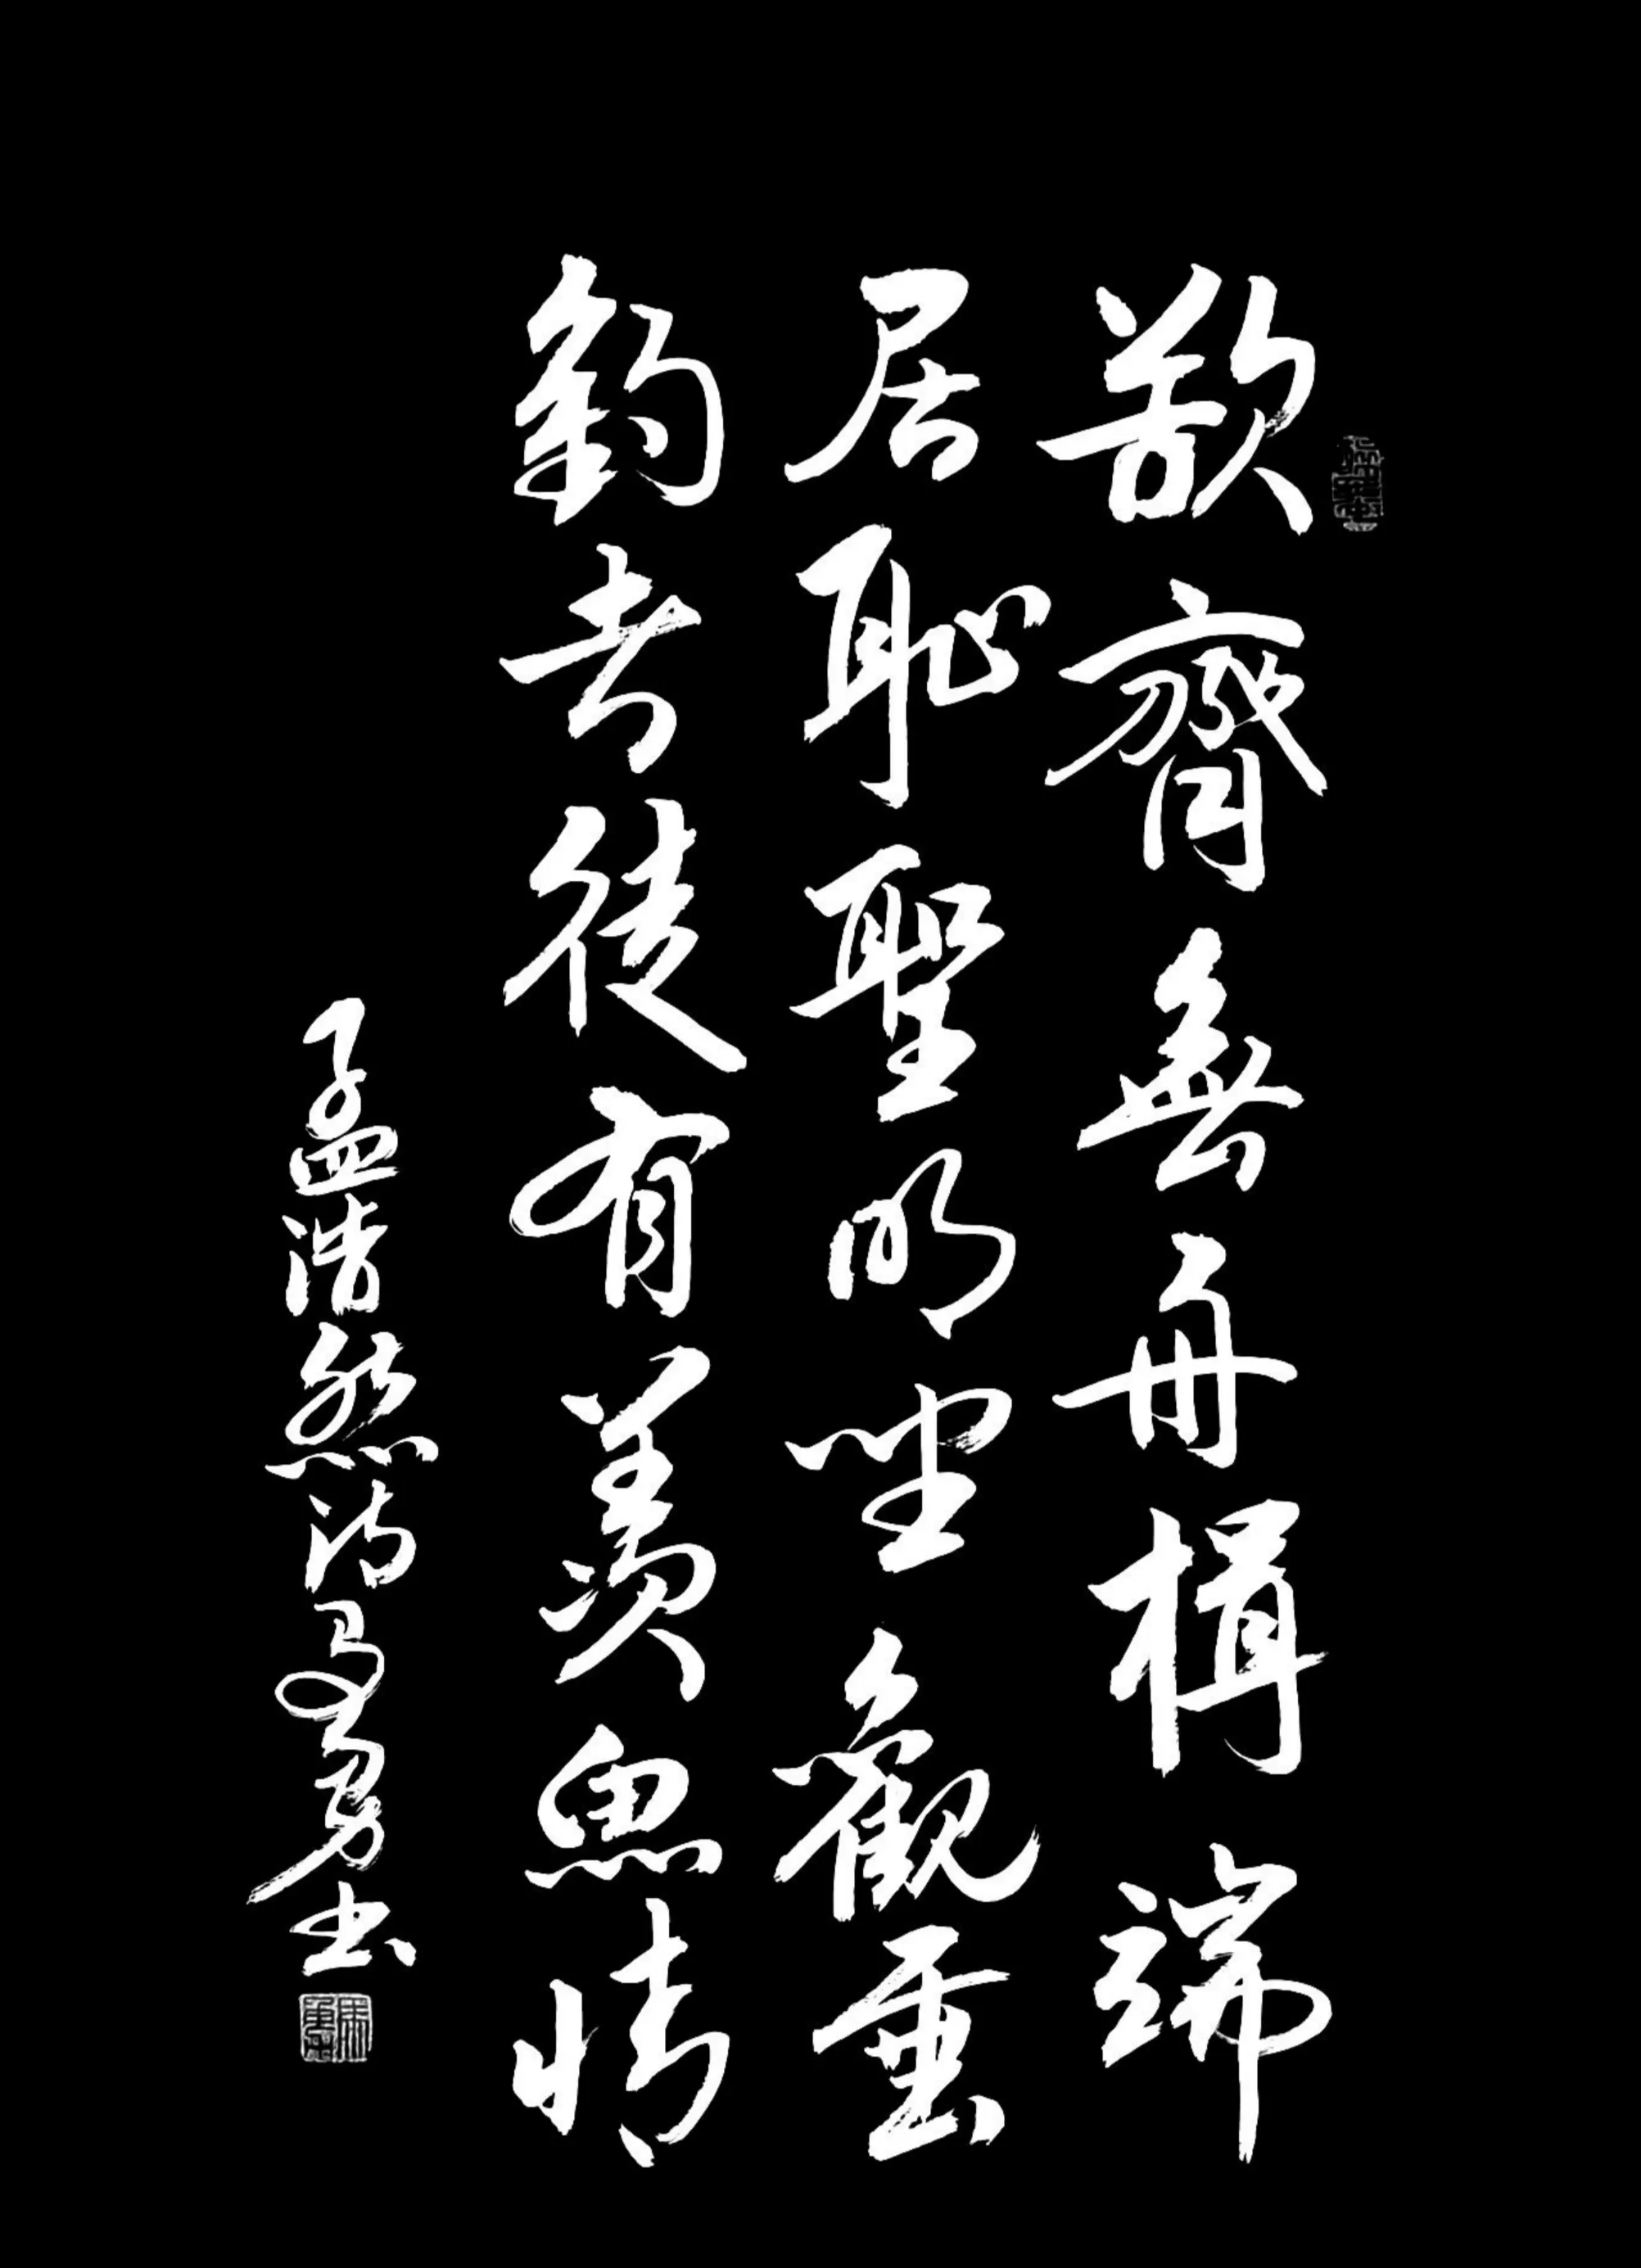 欲齊無舟楫端
居恥聖明坐觀垂
釣者徒有羨魚情
孟浩然诗书